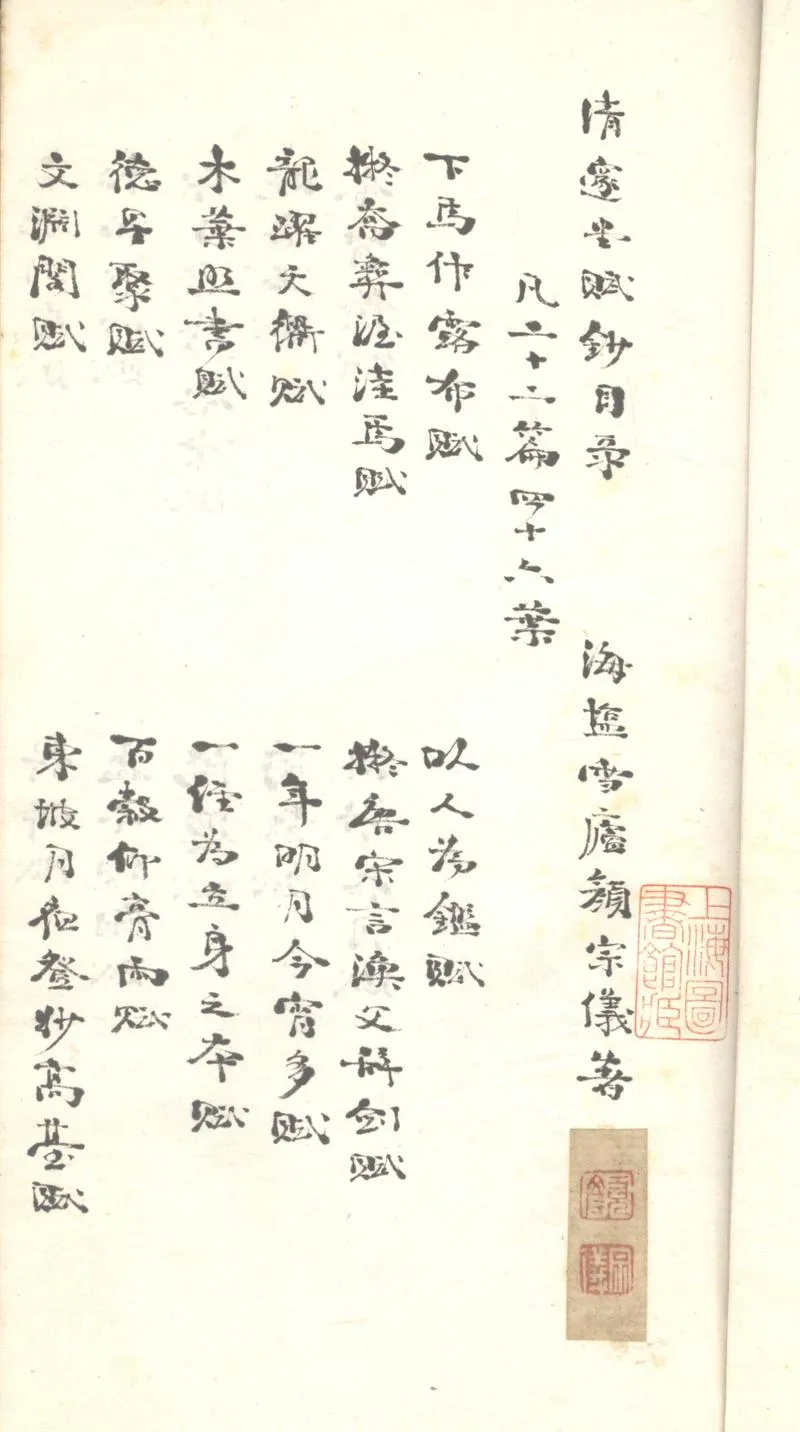 清邃堂賦鈔目录 海塩雪廬顏宗儀著
凡二十二篇四十六葉
下馬作露布賦 以人為鑑賦
擬喬彝渥洼馬賦 擬吾宗言漁父辭劍賦
龍躍天衢賦 一年明月今宵多賦
木葉照書賦 一經為立身之本賦
德星聚賦 百穀仰膏雨賦
文淵閣賦 東坡月夜登妙高臺賦
上海圖書館藏